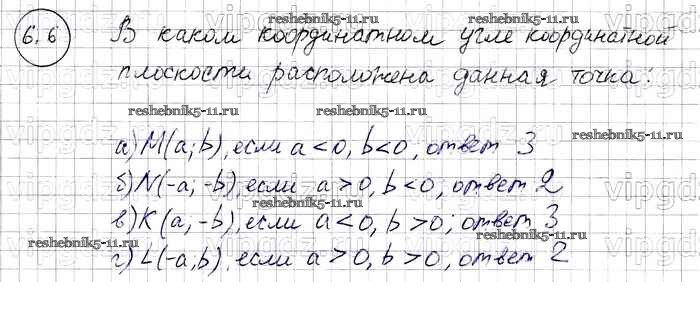 reshebnik5-11.ru
6.6 В каком координатном угле координатной
reshebnik5-11.ru
плоскости расположена данная точка:
reshebnik5-11.ru reshebnik5-11.ru
reshebnik5-11.ru
а) M(a; b), если a < 0, b < 0, ответ 3
vipgdz
б) N(-a; -b), если a > 0, b < 0, ответ 2
в) K(a; -b), если a < 0, b > 0; ответ 3
reshebnik5-11.ru reshebnik5-11.ru
г) L(-a; b), если a > 0, b > 0, ответ 2